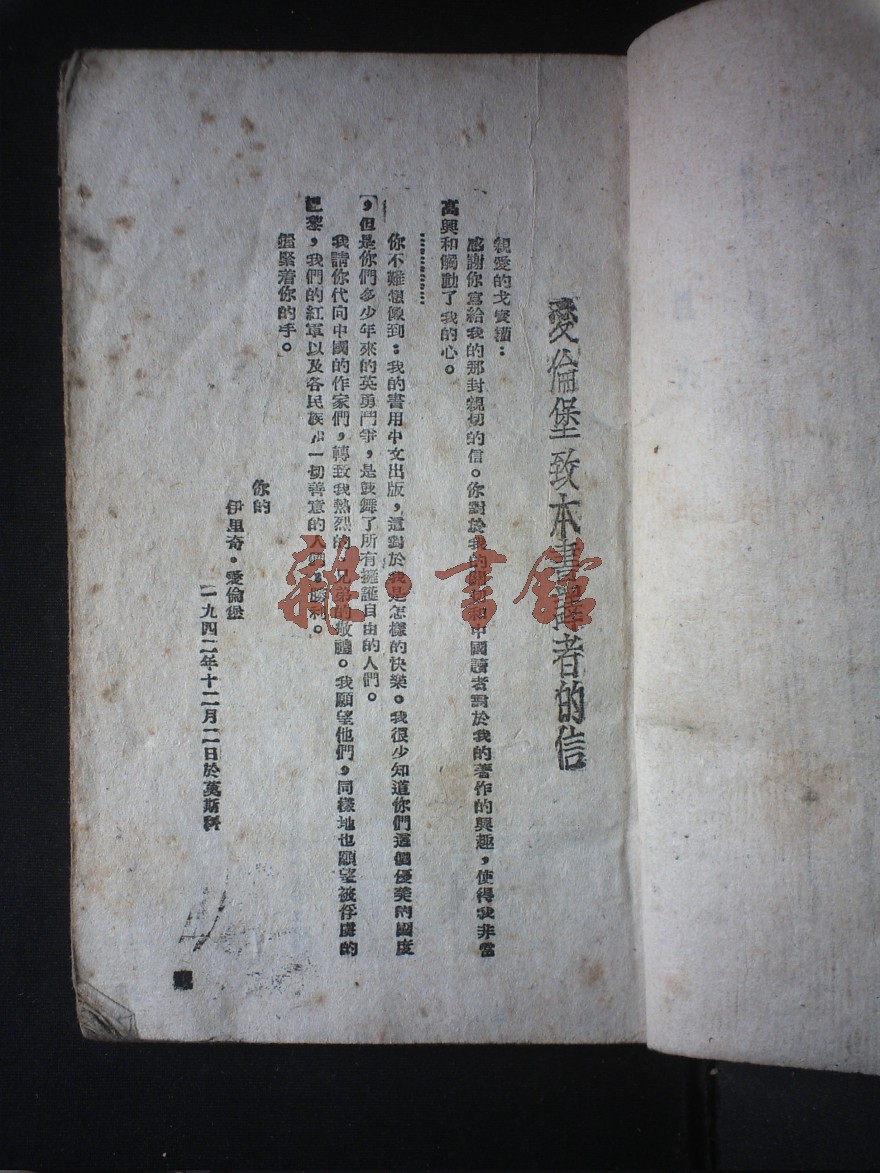 愛倫堡致本書譯者的信
親愛的戈寶權：
感謝你寫給我的那封親切的信。你對於我的和中國讀者對於我的著作的興趣，使得我非常
高興和觸動了我的心。
…………
你不難想像到：我的書用中文出版，這對於我是怎樣的快樂。我很少知道你們這個優美的國度
，但是你們多少年來的英勇鬥爭，是鼓舞了所有擁護自由的人們。
我請你代向中國的作家們，轉致我熱烈的，兄弟的敬禮。我願望他們，同樣地也願望被俘虜的
巴黎，我們的紅軍以及各民族一切善意的人們，勝利。
握緊着你的手。
你的
伊里奇·愛倫堡
一九四二年十二月二日於莫斯科
雜·書館